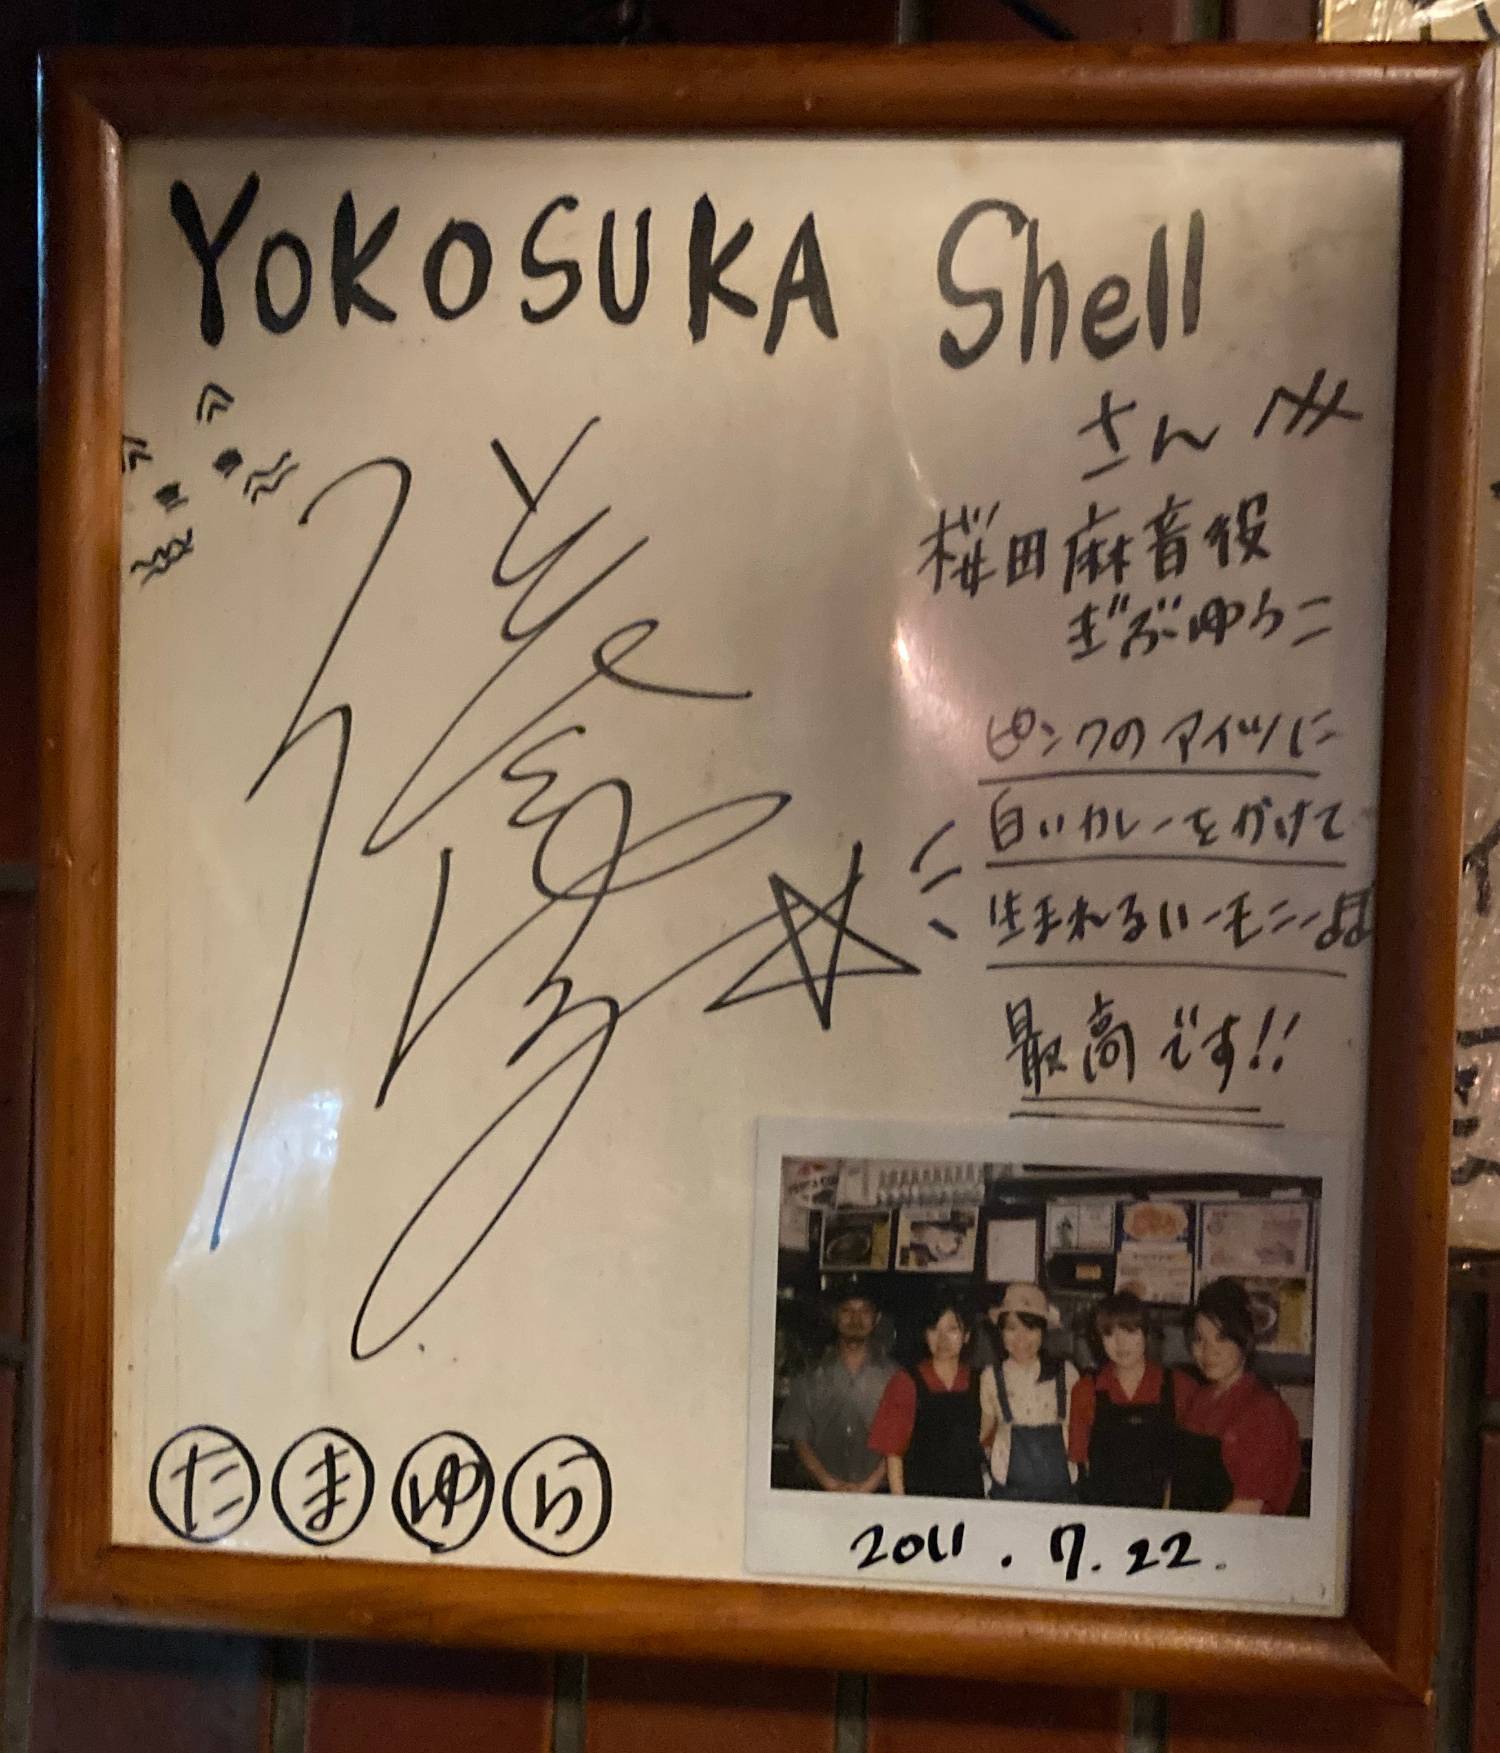 YOKOSUKA Shell
さん
桜田麻音役
ぎぶゆらこ
ピンクのアイツに
白いカレーをかけて
生まれるハーモニーは
最高です!!
たまゆら
2011.7.22.